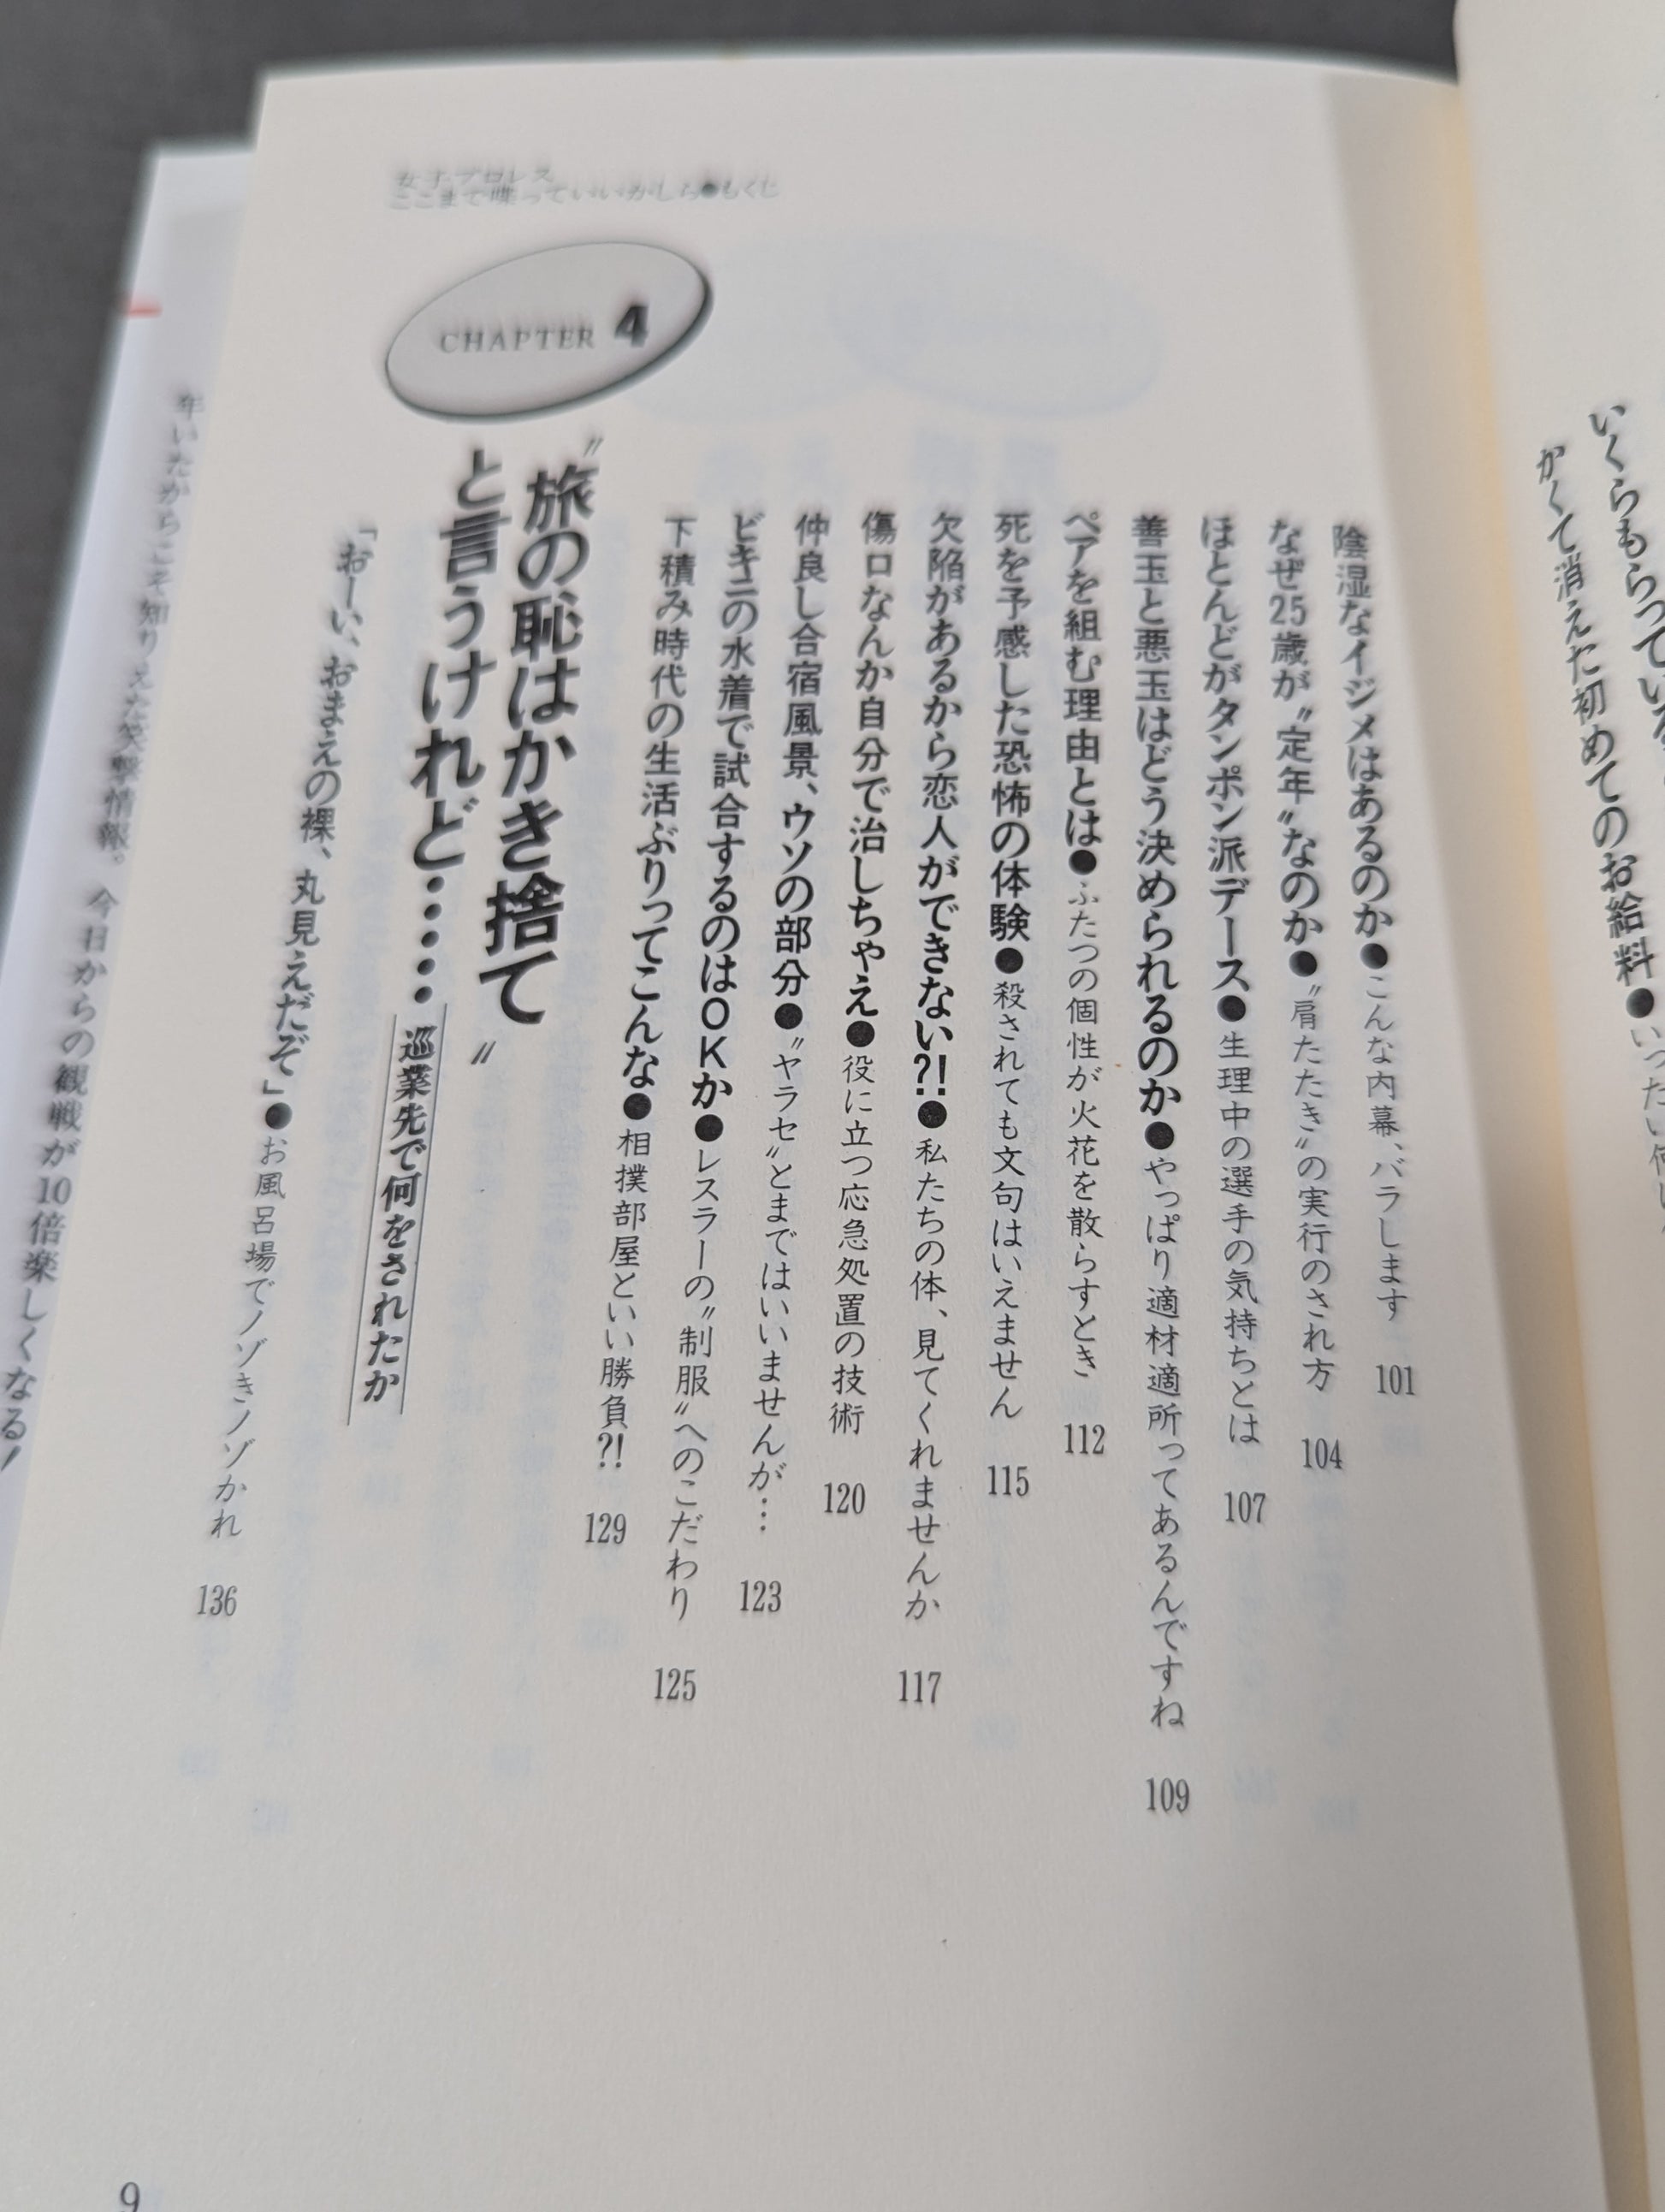 いくらもらっている
かくて消えた初めてのお給料●いったい何に
女子プロレス
ここまで喋っていいかしら●もくじ
陰湿なイジメはあるのか●こんな内幕、バラします 101
なぜ25歳が〝定年〟なのか●〝肩たたき〟の実行のされ方 104
ほとんどがタンポン派デース●生理中の選手の気持ちとは 107
善玉と悪玉はどう決められるのか●やっぱり適材適所ってあるんですね 109
ペアを組む理由とは●ふたつの個性が火花を散らすとき 112
死を予感した恐怖の体験●殺されても文句はいえません 115
欠陥があるから恋人ができない?!●私たちの体、見てくれませんか 117
傷口なんか自分で治しちゃえ●役に立つ応急処置の技術 120
仲良し合宿風景、ウソの部分●〝ヤラセ〟とまではいいませんが… 123
ビキニの水着で試合するのはOKか●レスラーの〝制服〟へのこだわり 125
下積み時代の生活ぶりってこんな●相撲部屋といい勝負?! 129
CHAPTER 4
〝旅の恥はかき捨て〟
と言うけれど……
巡業先で何をされたか
「おーい、おまえの裸、丸見えだぞ」●お風呂場でノゾきノゾかれ 136
9
年いたからこそ知りえた笑撃情報。今日からの観戦が10倍楽しくなる!